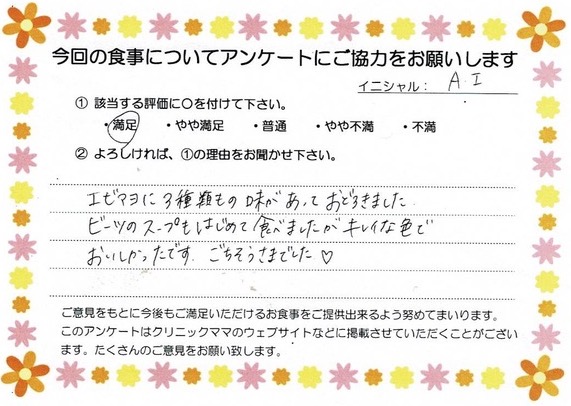 今回の食事についてアンケートにご協力をお願いします
イニシャル： A．I
① 該当する評価に〇を付けて下さい。
・満足 ・やや満足 ・普通 ・やや不満 ・不満
② よろしければ、①の理由をお聞かせ下さい。
エビマヨに3種類もの味があっておどろきました.
ビーツのスープもはじめて食べましたがキレイな色で
おいしかったです. ごちそうさまでした♡
ご意見をもとに今後もご満足いただけるお食事をご提供出来るよう努めてまいります。
このアンケートはクリニックママのウェブサイトなどに掲載させていただくことがござい
ます。たくさんのご意見をお願い致します。